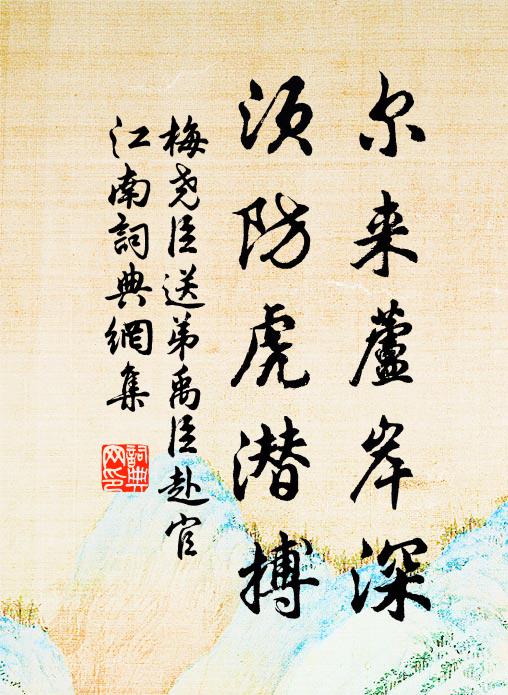 尔来蘆岸深
须防虎潜搏
梅尧臣送弟禹臣赴官
江南詞典網集
詞典网印